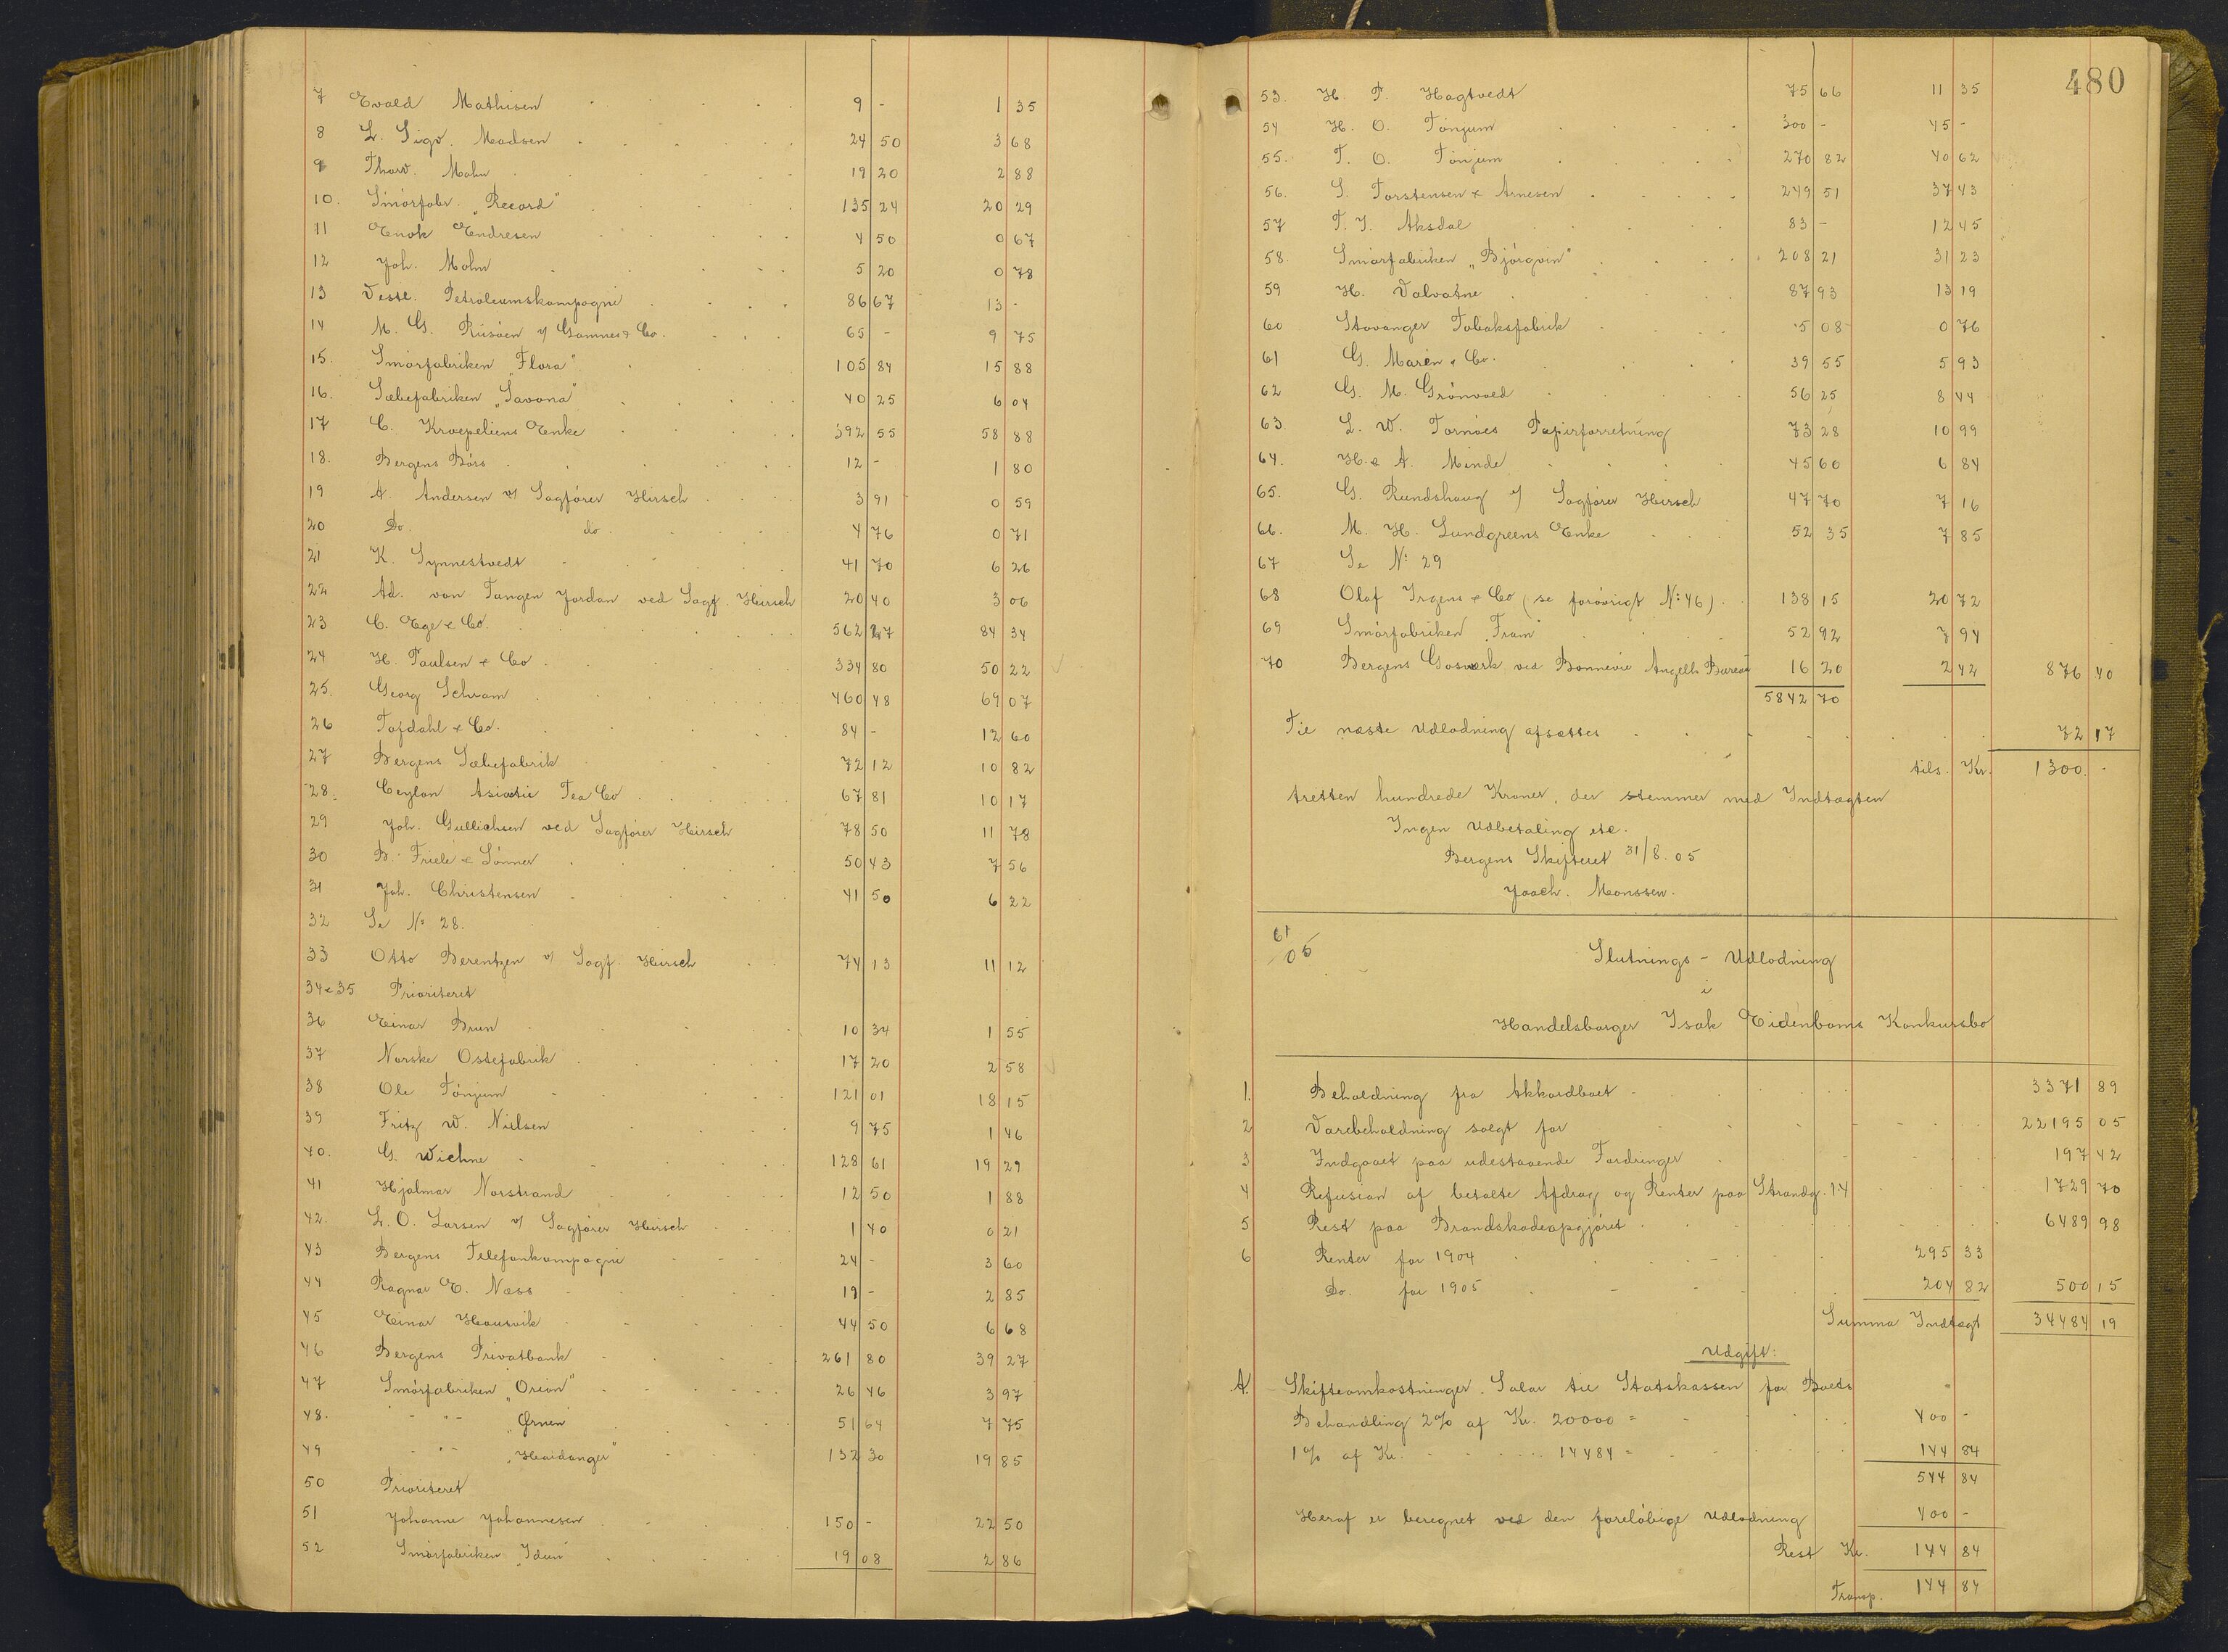 7 Evald Mathisen 9 - 1 35
8 L. Sigv. Madsen 24 50 3 68
9 Thorv. Mohn 19 20 2 88
10. Smörfabr. „Record" 135 24 20 29
11 Enok Endresen 4 50 0 67
12 Joh. Mohn 5 20 0 78
13 Vestl. Petroleumskompagni 86 67 13 -
14 M. G. Risöen v/ Gamnes & Co. 65 - 9 75
15. Smörfabriken „Flora" 105 84 15 88
16. Sæbefabriken „Savona" 40 25 6 04
17 C. Kroepeliens Enke 392 55 58 88
18. Bergens Börs 12 - 1 80
19 A. Andersen v/ Sagförer Hirsch 3 91 0 59
20 Do. do 4 76 0 71
21 K. Synnestvedt 41 70 6 26
22 Ad. von Tangen Jordan ved Sagf. Hirsch 20 40 3 06
23 C. Ege & Co. 562 27 84 34
24 H. Paulsen & Co. 334 80 50 22
25. Georg Schram 460 48 69 07
26 Tafdahl & Co. 84 - 12 60
27 Bergens Sæbefabrik 72 12 10 82
28. Ceylon Asiatic Tea Co 67 81 10 17
29 Joh. Gullichsen ved Sagförer Hirsch 78 50 11 78
30 B. Friele & Sönner 50 43 7 56
31 Joh. Christensen 41 50 6 22
32 Se No 28.
33 Otto Berentzen v/ Sagf. Hirsch 74 13 11 12
34 & 35 Prioriteret
36 Einar Brun 10 34 1 55
37 Norske Ostefabrik 17 20 2 58
38 Ole Tönjum 121 01 18 15
39 Fritz W. Nielsen 9 75 1 46
40. G. Wiehne 128 61 19 29
41 Hjalmar Norstrand 12 50 1 88
42. L. O. Larsen v/ Sagförer Hirsch 1 40 0 21
43 Bergens Telefonkompagni 24 - 3 60
44 Ragna E. Næss 19 - 2 85
45 Einar Hausvik 44 50 6 68
46 Bergens Privatbank 261 80 39 27
47 Smörfabriken „Orion" 26 46 3 97
48. - " - „Ørnen" 51 64 7 75
49 - " - „Hardanger" 132 30 19 85
50 Prioriteret
51 Johanne Johannesen 150 - 22 50
52 Smörfabriken „Idun" 19 08 2 86
480
53. H. P. Hagtvedt 75 66 11 35
54 H. O. Tönjum 300 - 45 -
55. T. O. Tönjum 270 82 40 62
56. S. Torstensen & Arnesen 249 51 37 43
57 T. J. Aksdal 83 - 12 45
58. Smörfabriken „Björgvin" 208 21 31 23
59 H. Valvatne 87 93 13 19
60 Stavanger Tobaksfabrik 5 08 0 76
61 G. Marén & Co. 39 55 5 93
62 G. M. Grönvold 56 25 8 44
63. L. W. Tornöes Papirforretning 73 28 10 99
64. H. & A. Minde 45 60 6 84
65. G. Rundshaug v/ Sagförer Hirsch 47 70 7 16
66. M. H. Lundgreens Enke 52 35 7 85
67 Se No: 29
68 Olaf Irgens & Co (se forövrigt No: 46) 138 15 20 72
69 Smörfabriken „Fram" 52 92 7 94
70 Bergens Gasverk ved Bonnevie Angells Bureau 16 20 2 42 876 40
5842 70
Til næste Udlodning afsættes 72 17
tils. Kr. 1300. -
tretten hundrede Kroner, der stemmer med Indtægten
Ingen Udbetaling etc.
Bergens Skifteret 31/8. 05
Joach. Monssen.
61/05 Slutnings - Udlodning
i
Handelsborger Isak Eidenboms Konkursbo
1. Beholdning fra Akkordboet 3371 89
2 Varebeholdning solgt for 22195 05
3 Indgaaet paa udestaaende Fordringer 197 42
4 Refusion af betalte Afdrag og Renter paa Strandg. 14 1729 70
5 Rest paa Brandskadeopgjöret 6489 98
6 Renter for 1904 295 33
Do. for 1905 204 82 500 15
Summa Indtægt 34484 19
Udgift:
A. Skifteomkostninger. Salær til Statskassen for Boets
Behandling 2% af Kr. 20000 = 400 -
1% af Kr. 14484 = 144 84
544 84
Heraf er beregnet ved den foreløbige Udlodning 400 -
Rest Kr. 144 84
Transp. 144 84